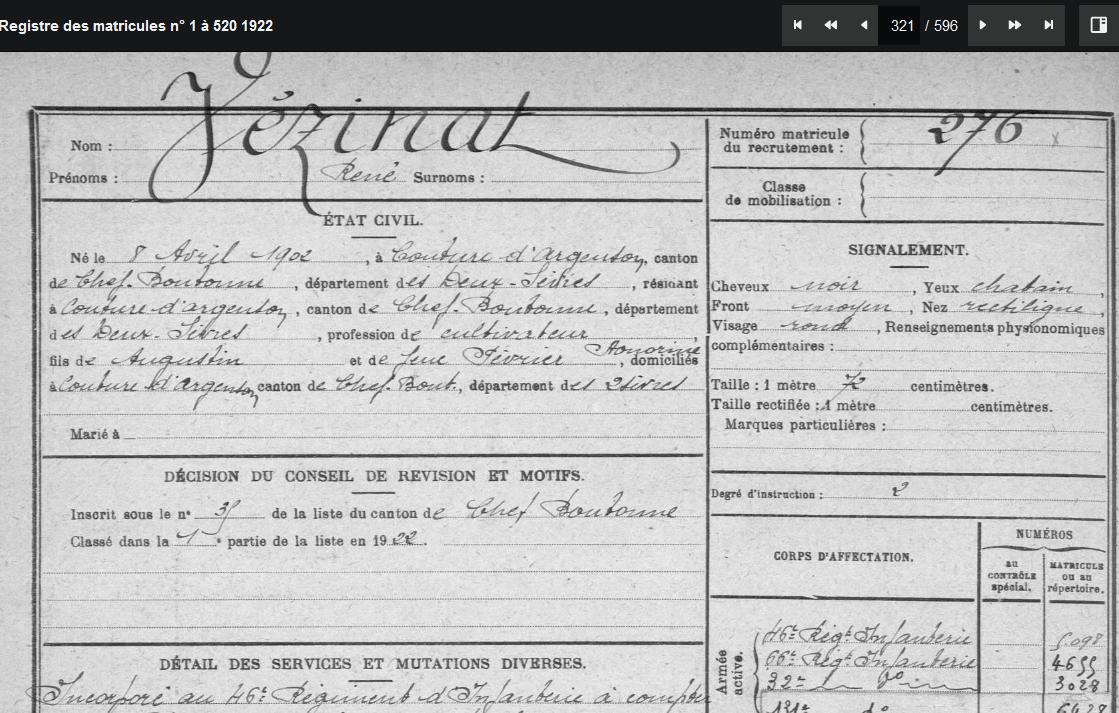 Registre des matricules n° 1 à 520 1922
321 / 596
Nom : Vézinat
Prénoms : René Surnoms :
Numéro matricule du recrutement : 276
Classe de mobilisation :
ÉTAT CIVIL.
Né le 8 Avril 1902, à Couture d'Argenson, canton
de Chef-Boutonne, département des Deux-Sèvres, résidant
à Couture-d'argenson, canton de Chef-Boutonne, département
des Deux-Sèvres, profession de cultivateur,
fils de Augustin et de feue Février Honorine, domiciliés
à Couture d'argenson, canton de Chef-Bout., département des 2 Sèvres
Marié à
SIGNALEMENT.
Cheveux noir, Yeux chatain,
Front moyen, Nez rectiligne,
Visage rond, Renseignements physionomiques
complémentaires :
Taille : 1 mètre 72 centimètres.
Taille rectifiée : 1 mètre centimètres.
Marques particulières :
Degré d'instruction : 2
DÉCISION DU CONSEIL DE REVISION ET MOTIFS.
Inscrit sous le n° de la liste du canton de Chef Boutonne
Classé dans la 1e partie de la liste en 1922.
CORPS D'AFFECTATION.
NUMÉROS
au CONTRÔLE spécial.
MATRICULE ou au répertoire.
Armée active.
46e Régt Infanterie
66e Régt Infanterie 4655
32e 3028
DÉTAIL DES SERVICES ET MUTATIONS DIVERSES.
Incorporé au 46e Régiment d'Infanterie à compter